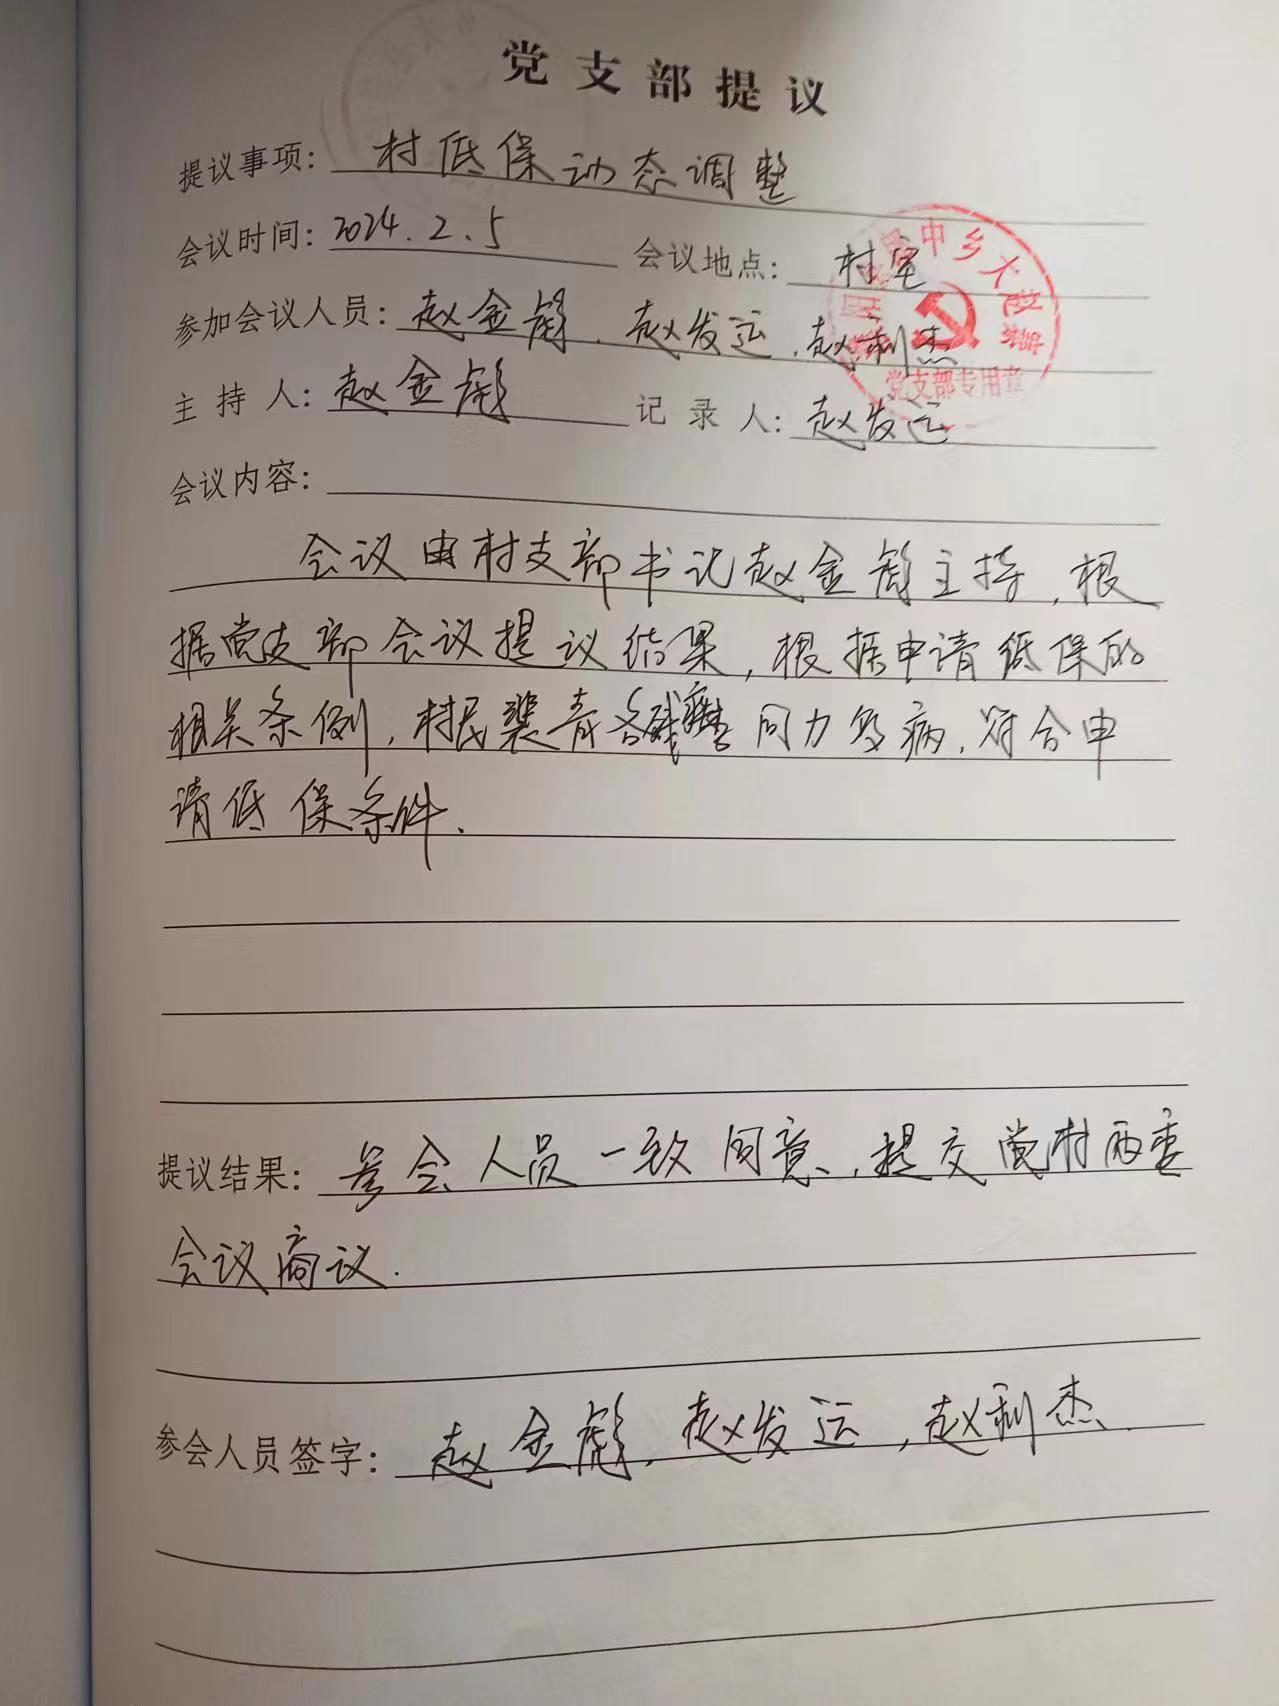 党支部提议
提议事项：村低保动态调整
会议时间：2024.2.5 会议地点：村室
中乡大赵寨
党支部专用章
参加会议人员：赵金彪、赵发运、赵利杰
主持人：赵金彪 记录人：赵发运
会议内容：
会议由村支部书记赵金彪主持，根
据党支部会议提议结果，根据申请低保的
相关条例，村民 青 病，符合申
请低保条件.
提议结果：参会人员一致同意，提交党村两委
会议商议.
参会人员签字：赵金彪、赵发运，赵利杰